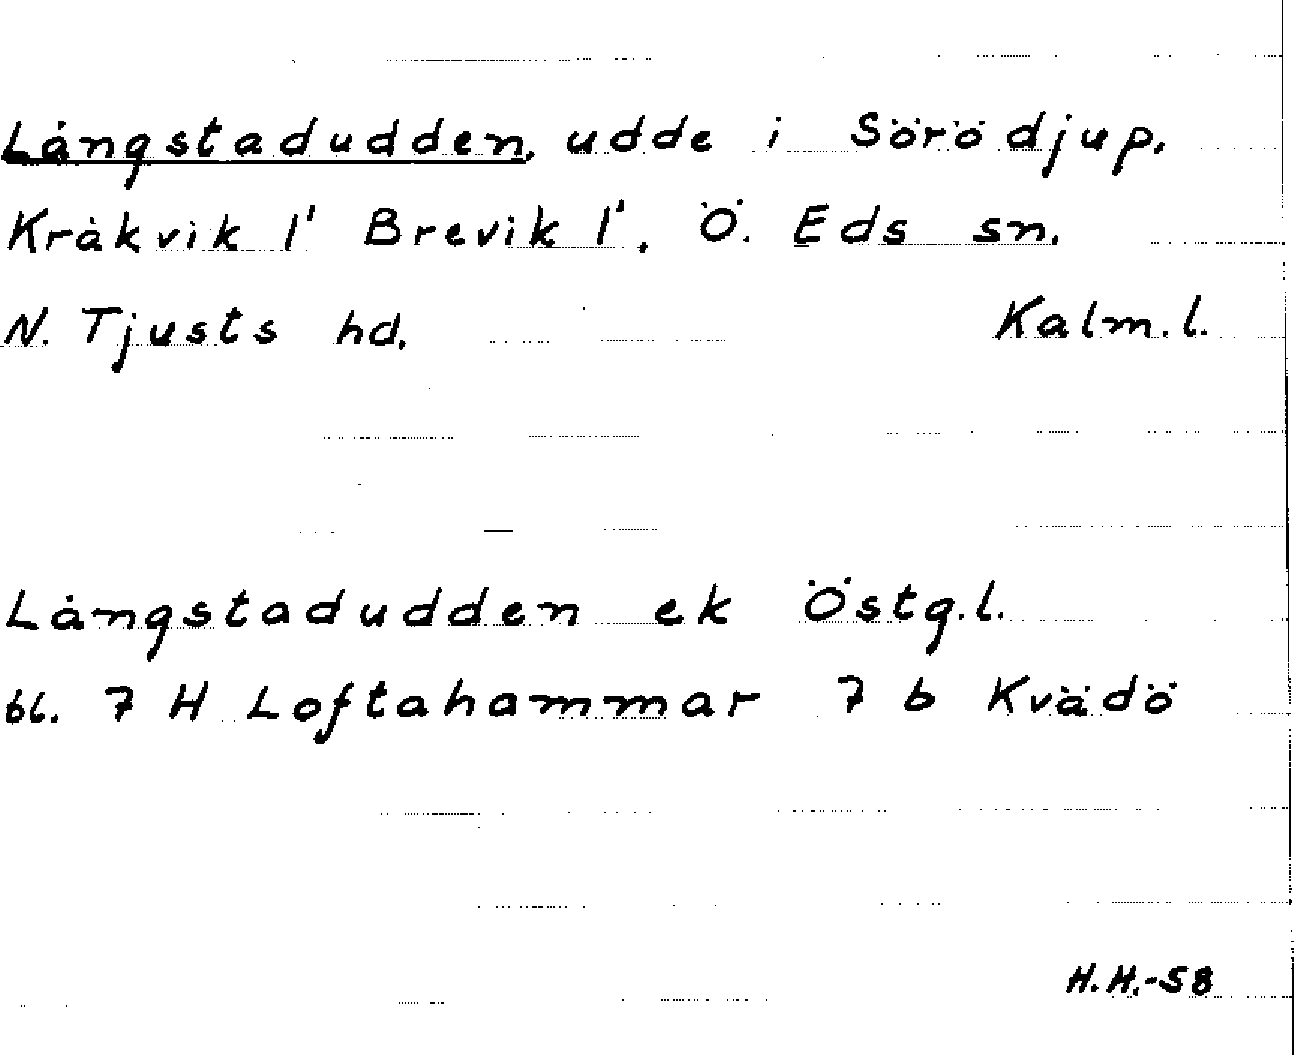 Långstadudden, udde i Sörö djup.
Kråkvik 1' Brevik 1'. Ö. Eds sn.
N. Tjusts hd. Kalm.l.
Långstadudden ek Östg.l.
bl. 7 H Loftahammar 7 b Kvädö
H.H.-58